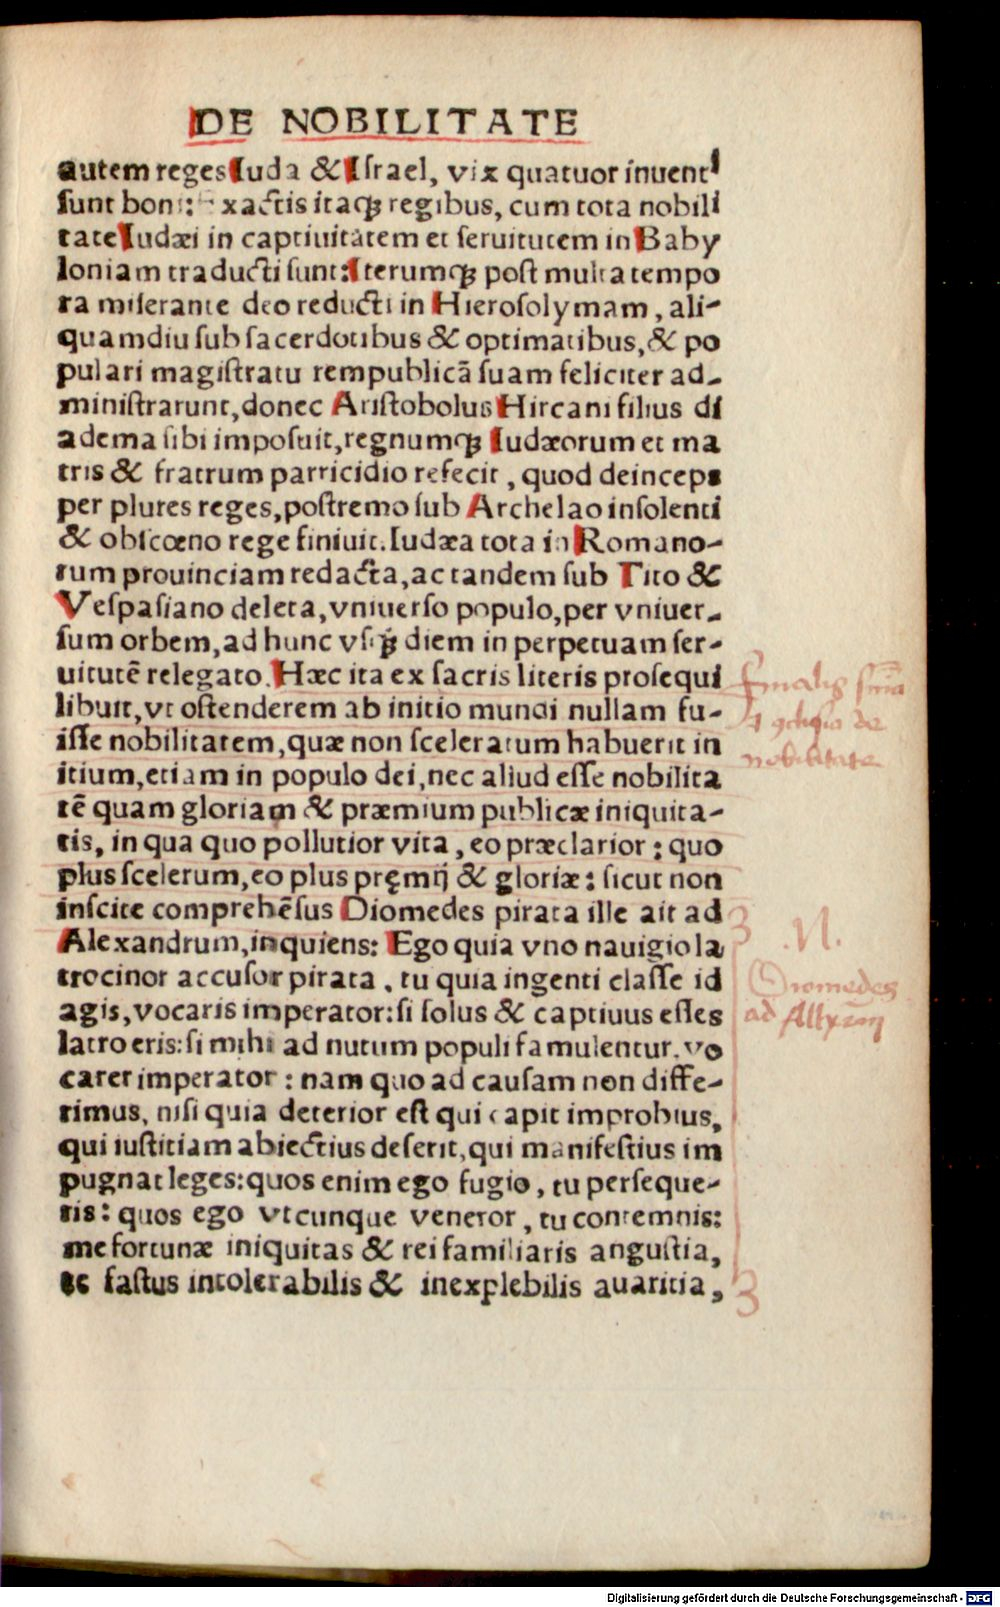 DE NOBILITATE
autem reges Iuda & Israel, vix quatuor inuenti
sunt boni: Exactis itaqꝫ regibus, cum tota nobili
tate Iudæi in captiuitatem et seruitutem in Baby
loniam traducti sunt: Iterumqꝫ post multa tempo
ra miserante deo reducti in Hierosolymam, ali-
quamdiu sub sacerdotibus & optimatibus, & po
pulari magistratu rempublicā suam feliciter ad-
ministrarunt, donec Aristobolus Hircani filius di
adema sibi imposuit, regnumqꝫ Iudæorum et ma
tris & fratrum parricidio refecit, quod deinceps
per plures reges, postremo sub Archelao insolenti
& obscœno rege finiuit. Iudæa tota in Romano-
rum prouinciam redacta, ac tandem sub Tito &
Vespasiano deleta, vniuerso populo, per vniuer-
sum orbem, ad hunc vsqꝫ diem in perpetuam ser-
uitutē relegato. Hæc ita ex sacris literis prosequi
libuit, vt ostenderem ab initio mundi nullam fu-
isse nobilitatem, quæ non sceleratum habuerit in
itium, etiam in populo dei, nec aliud esse nobilita
tē quam gloriam & præmium publicæ iniquita-
tis, in qua quo pollutior vita, eo præclarior: quo
plus scelerum, eo plus pręmij & gloriæ: sicut non
inscite comprehēsus Diomedes pirata ille ait ad
Alexandrum, inquiens: Ego quia vno nauigio la
trocinor accusor pirata, tu quia ingenti classe id
agis, vocaris imperator: si solus & captiuus esses
latro eris: si mihi ad nutum populi famulentur, vo
carer imperator: nam quo ad causam non diffe-
rimus, nisi quia deterior est qui capit improbius,
qui iustitiam abiectius deserit, qui manifestius im
pugnat leges: quos enim ego fugio, tu perseque-
ris: quos ego vtcunque veneror, tu contemnis:
me fortunæ iniquitas & rei familiaris angustia,
te fastus intolerabilis & inexplebilis auaritia,
de
nobilitate
.N.
Diomedes
ad
Digitalisierung gefördert durch die Deutsche Forschungsgemeinschaft - DFG